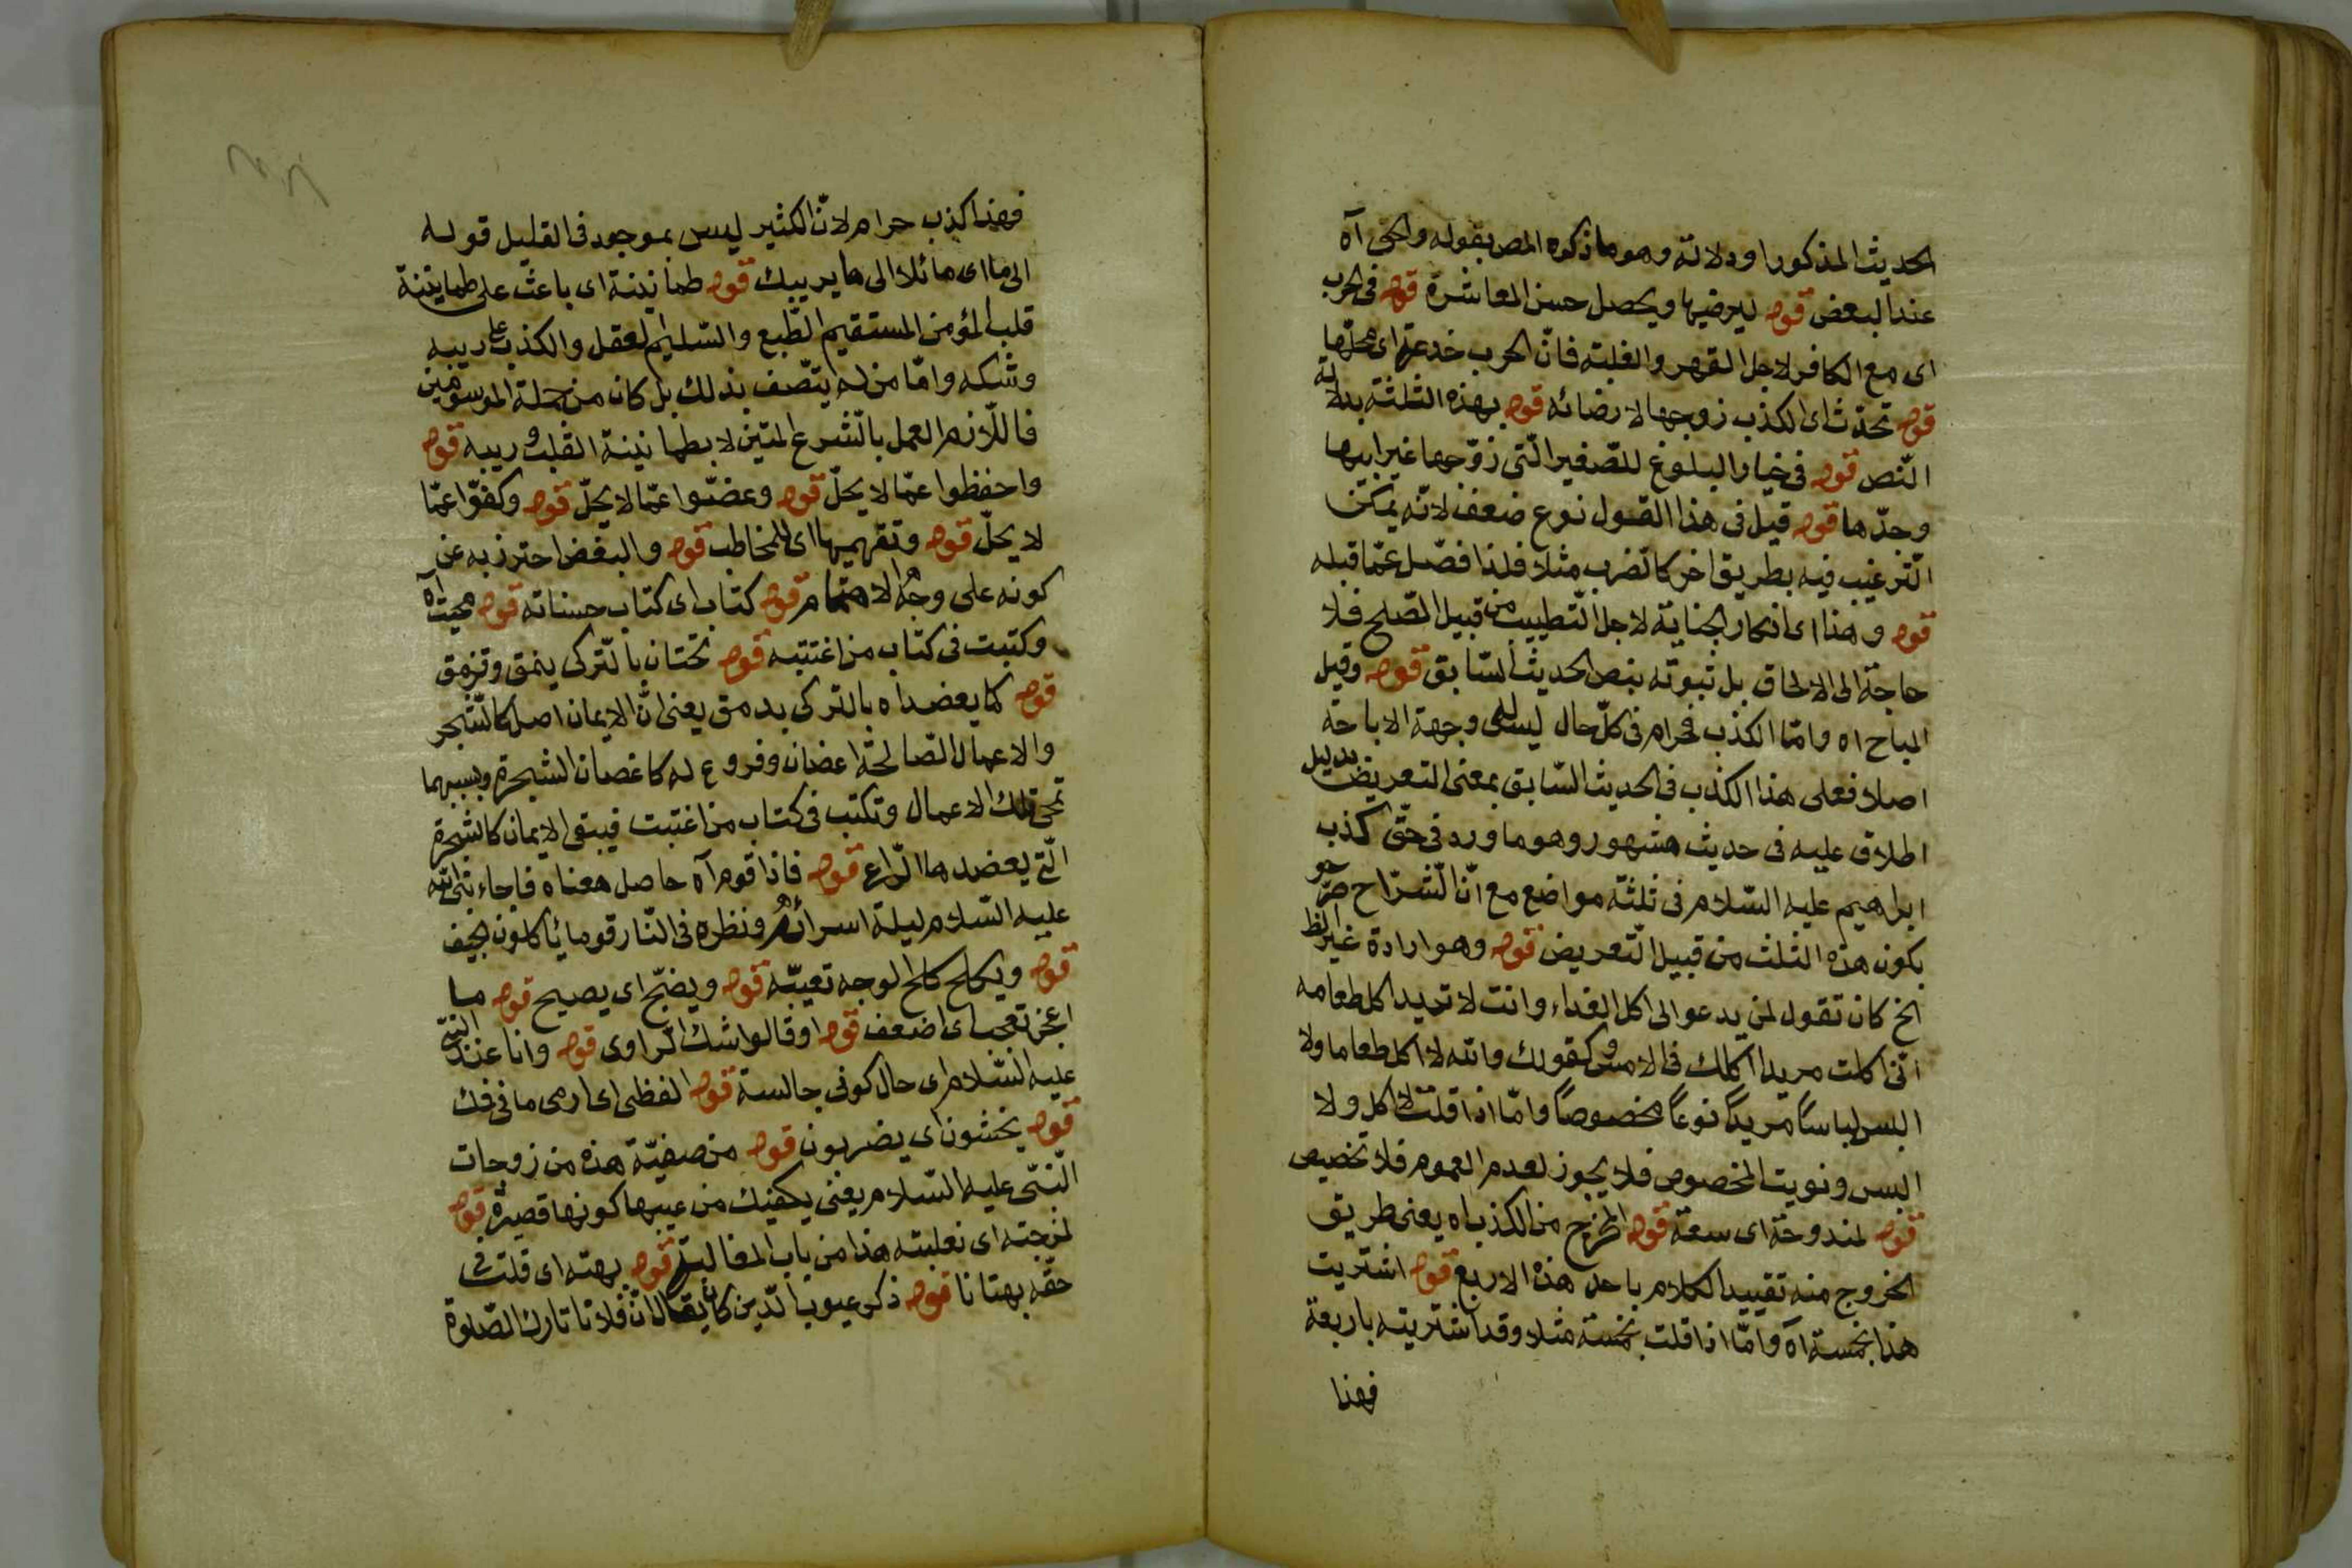 الحديث المذكور او دلالته وهو ما ذكره المص بقوله والحق آه
عند البعض قوله ليرضيها ويحصل حسن المعاشرة قوله فى الحرب
اى مع الكافر لاجل القهر والغلبة فانّ الحرب خدعة اى محلّها
قوله تحدّث اى الكذب زوجها لارضائه قوله بهذه الثلثة بدلالة
النّص قوله فى خيار البلوغ للصّغير الّتى زوّجها غير ابيها
وجدّها قوله قيل فى هذا القول نوع ضعف لانّه يمكن
التّرغيب فيه بطريق اخر كالضرب مثلا فلذا فصّل عمّا قبله
قوله وهذا اى انكار الجناية لاجل التّطييب من قبيل الصّلح فلا
حاجة الى الالحاق بل ثبوته بنص الحديث السّابق قوله وقيل
المباح اه وامّا الكذب فحرام فى كلّ حال ليس له وجهة الاباحة
اصلا فعلى هذا الكذب فى الحديث السّابق بمعنى التعريض بدليل
اطلاق عليه فى حديث مشهور وهو ما ورد فى حقّ كذب
ابراهيم عليه السّلام فى ثلثة مواضع مع انّ الشّرّاح صرّحو
بكون هذه الثلث من قبيل التّعريض قوله وهو ارادة غير الظ
الخ كان تقول لمن يدعو الى اكل الغداء وانت لا تريد اكل طعامه
انّى اكلت مريدا اكلك فى الامس وكقولك والله لا اكل طعاما ولا
البس لباساً مريداً نوعاً مخصوصاً وامّا اذا قلت لا اكل ولا
البس ونويت المخصوص فلا يجوز لعدم العموم فلا تخصيص
قوله لمندوحة اى سعة قوله المخرج من الكذب اه يعنى طريق
الخروج منه تقييد الكلام باحد هذه الاربع قوله اشتريت
هذا بخمسة آه وامّا اذا قلت بخمسة مثلا وقد اشتريته باربعة
فهذا
فهذا كذب حرام لانّ الكثير ليس بموجود فى القليل قوله
الى ما اى مائلا الى ما يريبك قوله طمأنينة اى باعث على طمانينة
قلب المؤمن المستقيم الطّبع والسّليم العقل والكذب على ريبه
وشكه وامّا من لم يتّصف بذلك بل كان من جملة الموسوسين
فاللّازم العمل بالشّرع المتين لا بطمانينة القلب وريبه قوله
واحفظوا عمّا لا يحلّ قوله وغضّوا عمّا لا يحلّ قوله وكفّوا عمّا
لا يحلّ قوله وتفهيمها اى للمخاطب قوله والبغض احترز به عن
كونه على وجه الاهتمام قوله كتاب اى كتاب حسناته قوله محيت اه
وكتبت فى كتاب من اغتبته قوله تحتان بالتّركى ينمق وقزمق
قوله كما يعضد اه بالتركى بدمق يعنى انّ الايمان اصل كالشّجر
والاعمال الصّالحة اغضان وفروع له كاغصان الشجرة وبسببهما
تمحى تلك الاعمال وتكتب فى كتاب من اغتبت فيبقى الايمان كالشجرة
الّتى يعضدها الرّاع قوله فاذا قوم آه حاصل معناه فاجاء نبى الله
عليه السّلام ليلة اسرائه ونظره فى النّار قوما يأكلون الجيف
قوله ويكلح كلح الوجه تعيبّه قوله ويضجّ اى يصيح قوله ما
اعجز تعجب اى اضعف قوله او قالوا شك الرّاوى قوله وانا عند النبىّ
عليه السّلام اى حال كونى جالسة قوله الفظى اى ارمى ما فى فك
قوله يخشون اى يضربون قوله من صفيّة هذه من زوجات
النّبىّ عليه السّلام يعنى يكفيك من عيبها كونها قصيرة قوله
لمزجته اى نغلبته هذا من باب المغالبة قوله بهته اى قلت فى
حقّه بهتانا قوله ذكر عيوب الّذين كان يقال انّ فلانا تارك الصّلوة